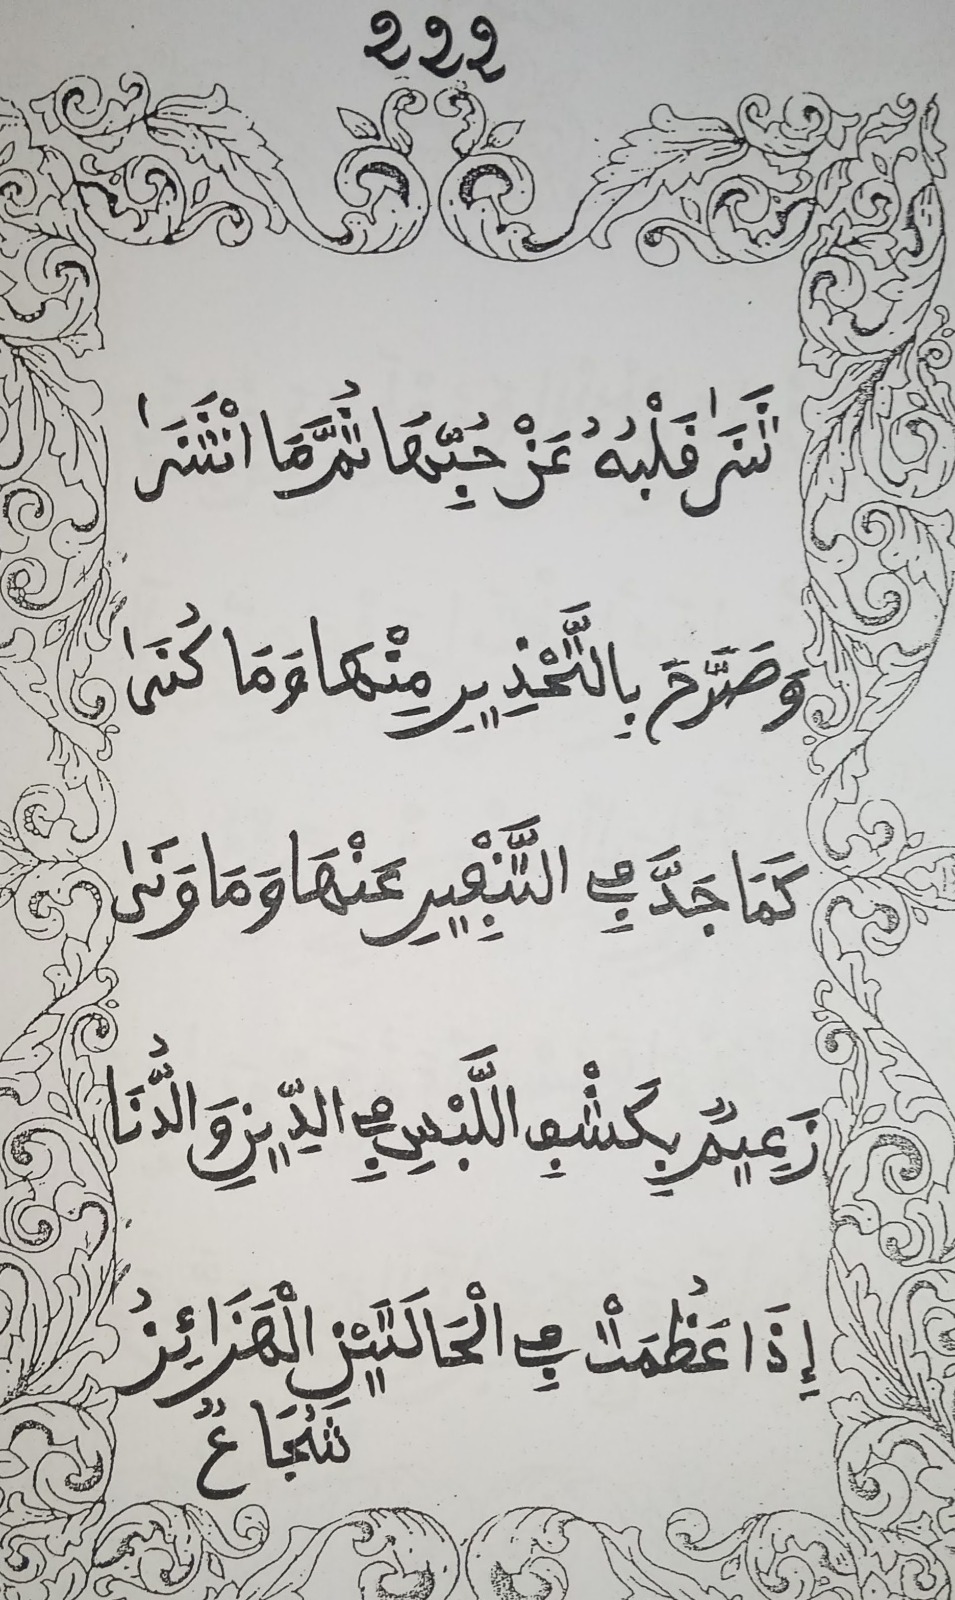 222
ثَنَى قَلْبُهُ عَنْ حُبِّهَا ثُمَّ مَا انْثَنَى
وَصَرَّحَ بِالتَّحْذِيرِ مِنْهَا وَمَا كُنَى
كَمَا جَدَّ فِي التَّنْفِيرِ عَنْهَا وَمَا وَنَى
زَعِيمٌ بِكَشْفِ اللَّبْسِ فِي الدِّينِ وَالدُّنَا
إِذَا عَظُمَتْ فِي الْحَالَتَيْنِ الْهَزَائِزُ
شُجَاعٌ